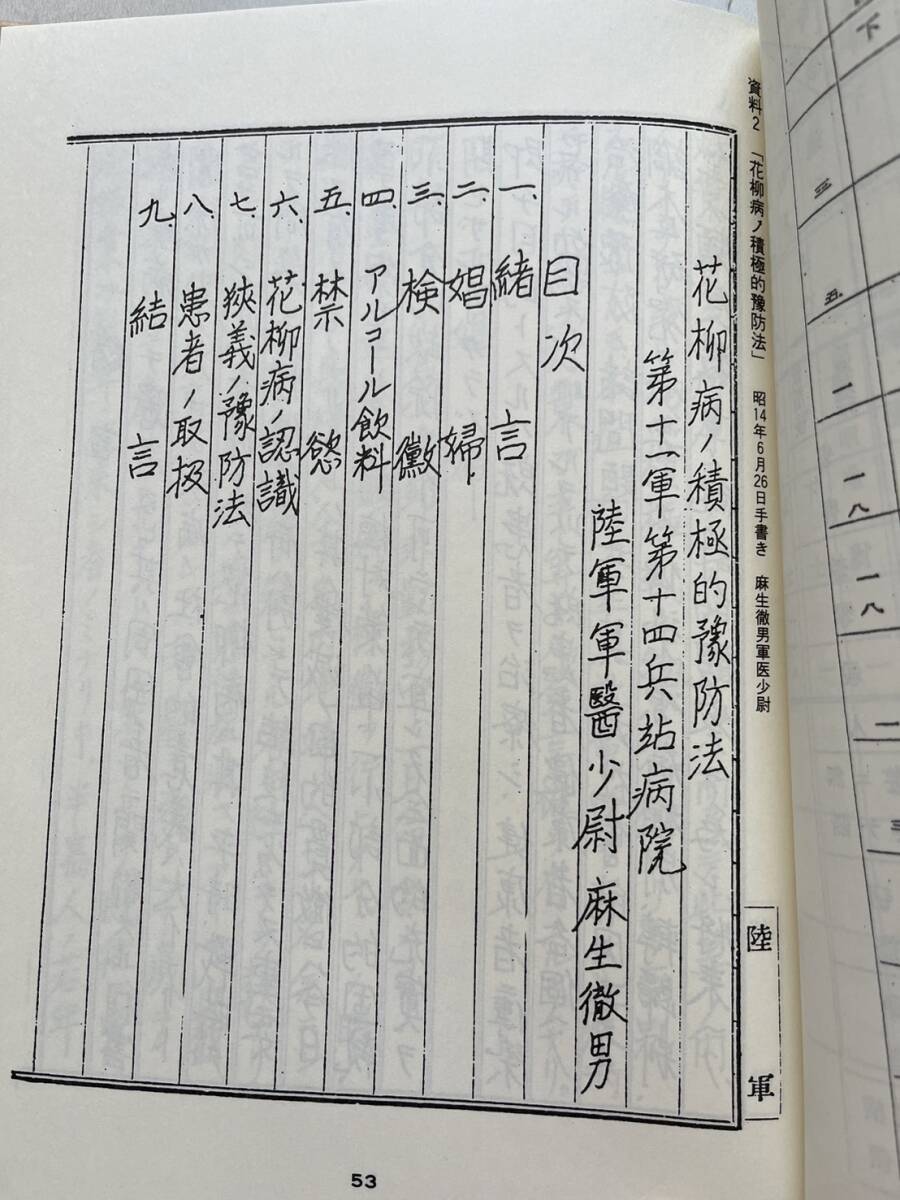 資料2 「花柳病ノ積極的豫防法」 昭14年6月26日手書き 麻生徹男軍医少尉
花柳病ノ積極的豫防法
第十一軍第十四兵站病院
陸軍軍醫少尉 麻生徹男
目次
一、緒言
二、娼婦
三、検黴
四、アルコール飲料
五、禁慾
六、花柳病ノ認識
七、狹義ノ豫防法
八、患者ノ取扱
九、結言
陸軍
53
下
三
五
一
一八
一八
一